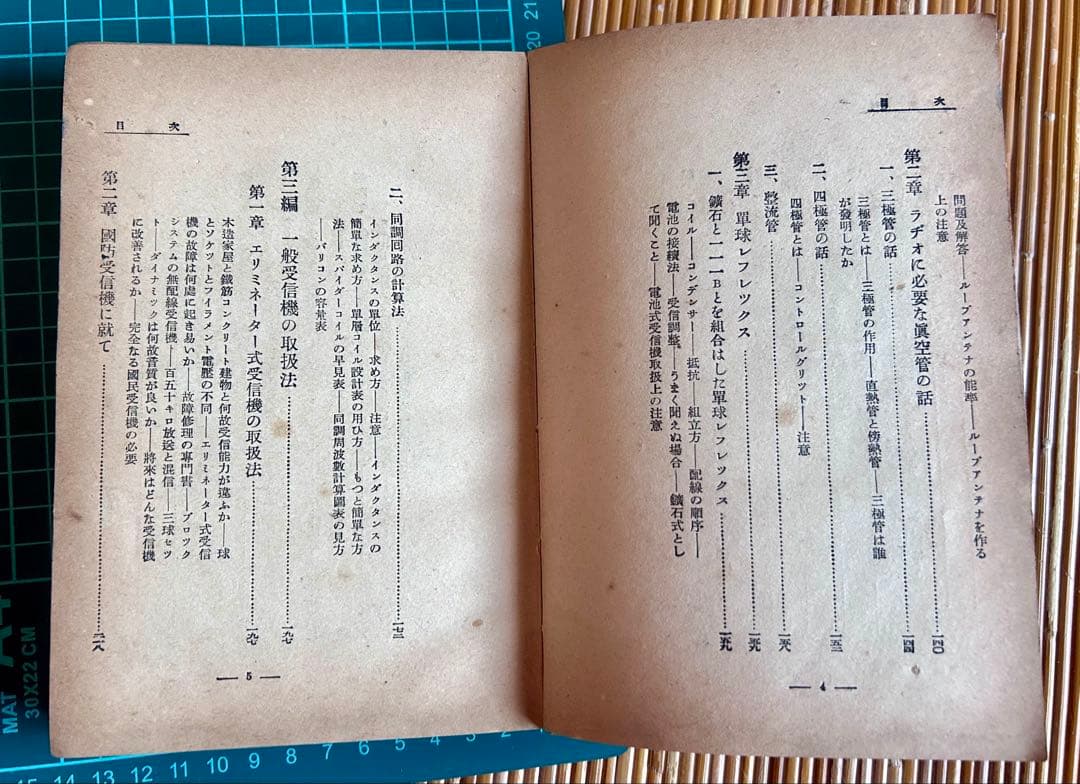 目次
問題及解答──ループアンテナの能率──ループアンテナを作る
上の注意……一四〇
第二章 ラヂオに必要な眞空管の話……一四四
一、三極管の話
三極管とは──三極管の作用──直熱管と傍熱管──三極管は誰
が發明したか
二、四極管の話……一五三
四極管とは──コントロールグリツト──注意
三、整流管……一五八
第三章 單球レフレツクス……一五九
一、鑛石と一一一Bとを組合はした單球レフレツクス……一五九
コイル──コンデンサー──抵抗──組立方──配線の順序──
電池の接續法──受信調整。──うまく聞えぬ場合──鑛石式とし
て聞くこと──電池式受信機取扱上の注意
― 4 ―
目次
二、同調回路の計算法……一七二
インダクタンスの單位──求め方──注意──インダクタンスの
簡單な求め方──單層コイル設計表の用ひ方──もつと簡單な方
法──スパイダーコイルの早見表──同調周波數計算圖表の見方
──バリコンの容量表
第三編 一般受信機の取扱法……一九七
第一章 エリミネーター式受信機の取扱法……一九七
木造家屋と鐵筋コンクリート建物と何故受信能力が違ふか──球
とソケツトとフイラメント電壓の不同──エリミネーター式受信
機の故障は何處に起き易いか──故障修理の專門書──ブロツク
システムの無配線受信機──百五十キロ放送と混信──三球セツ
ト──ダイナミツクは何故音質が良いか──將來はどんな受信機
に改善されるか──完全なる國民受信機の必要
第二章 國防受信機に就て……二一八
― 5 ―
MAT
A4
30X22 CM
21
20
15 14 13 12 11 10 9 8 7 6 5 4 3 2